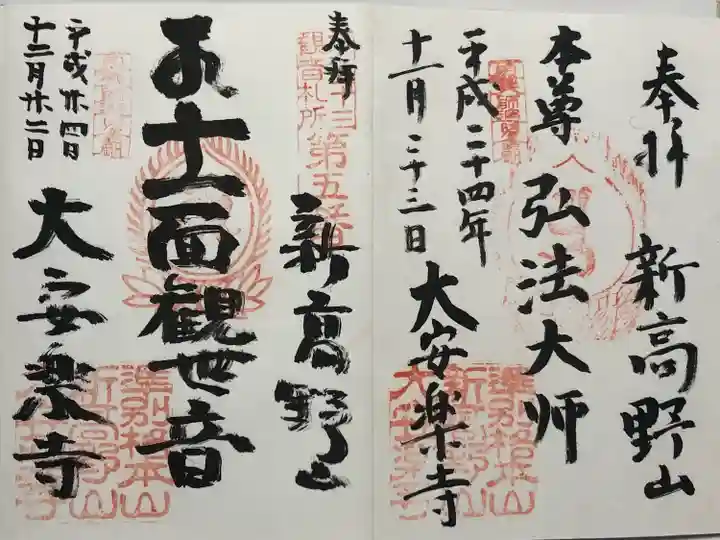 奉拝
新高野山
本尊
弘法大師
平成二十四年
十一月二十三日
大安楽寺
奉拝
観音札所
第五番
新高野山
十一面観世音
平成廿四
十二月廿二日
大安楽寺
準別格本山
新高野山
大安楽寺
準別格本山
新高野山